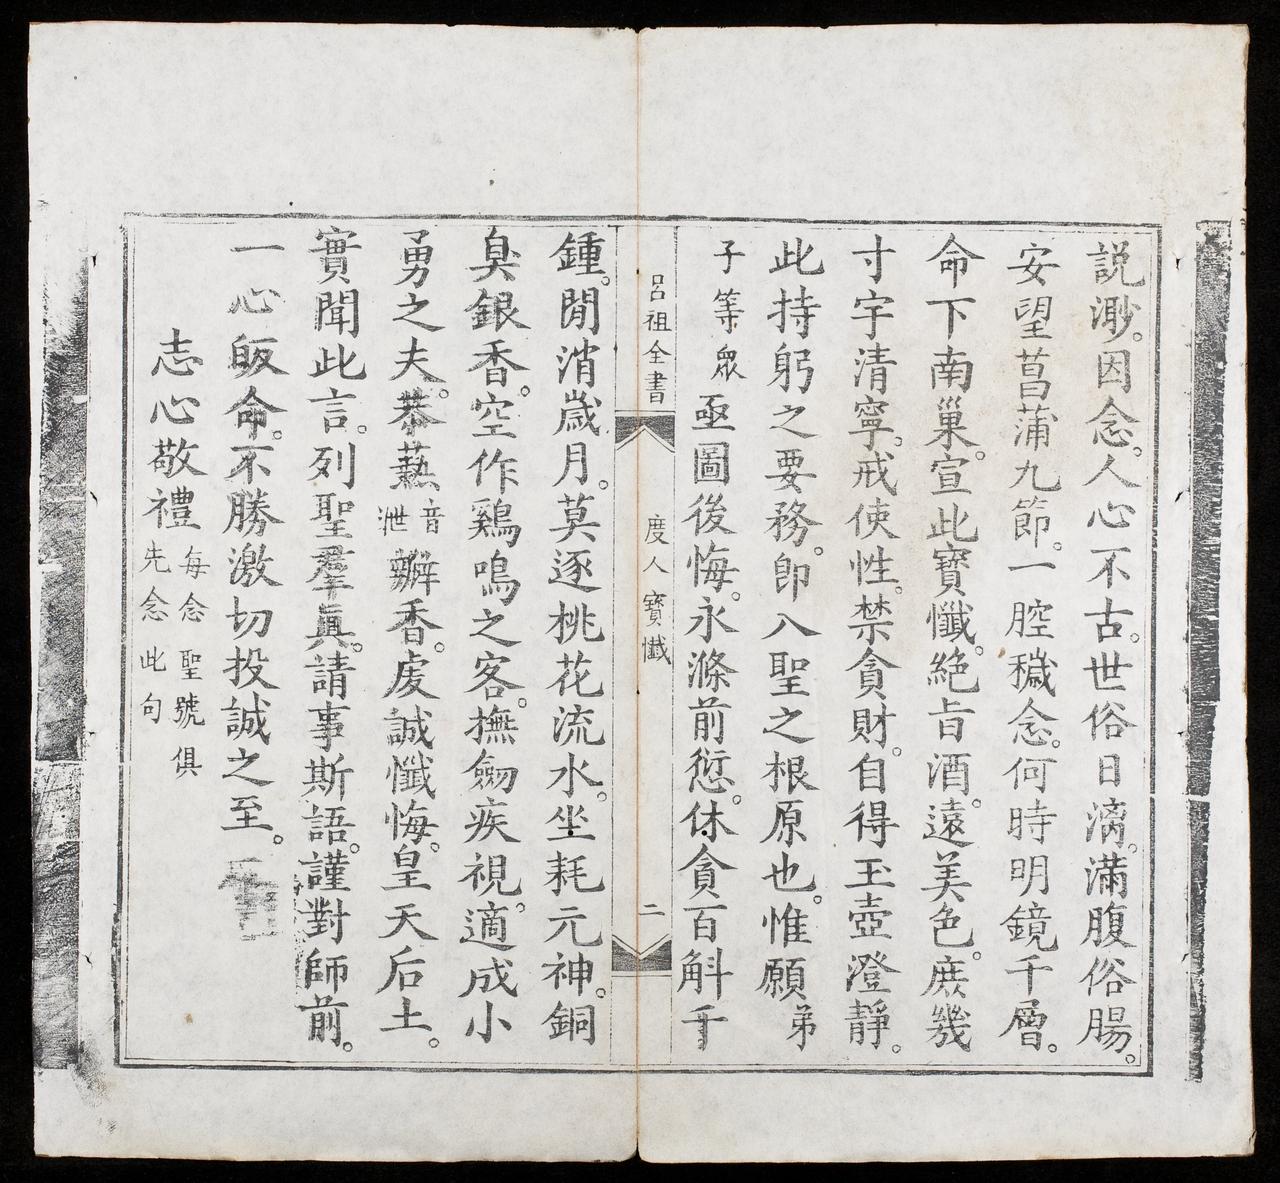 説渺。因念。人心不古。世俗日漓。滿腹俗腸。
安望菖蒲九節。一腔穢念。何時明鏡千層。
命下南巢。宣此寶懺。絶旨酒。遠美色。庶幾
寸宇清寧。戒使性。禁貪財。自得玉壺澄靜。
此持躬之要務。即入聖之根原也。惟願弟
子等衆亟圖後悔。永滌前愆。休貪百斛千
呂祖全書 度人寶懺 二
鍾。閒消歲月。莫逐桃花流水。坐耗元神。銅
臭銀香。空作鷄鳴之客。撫劒疾視。適成小
勇之夫。恭爇音泄瓣香。虔誠懺悔。皇天后土。
實聞此言。列聖羣眞。請事斯語。謹對師前。
一心皈命。不勝激切投誠之至。
志心敬禮每念聖號俱先念此句